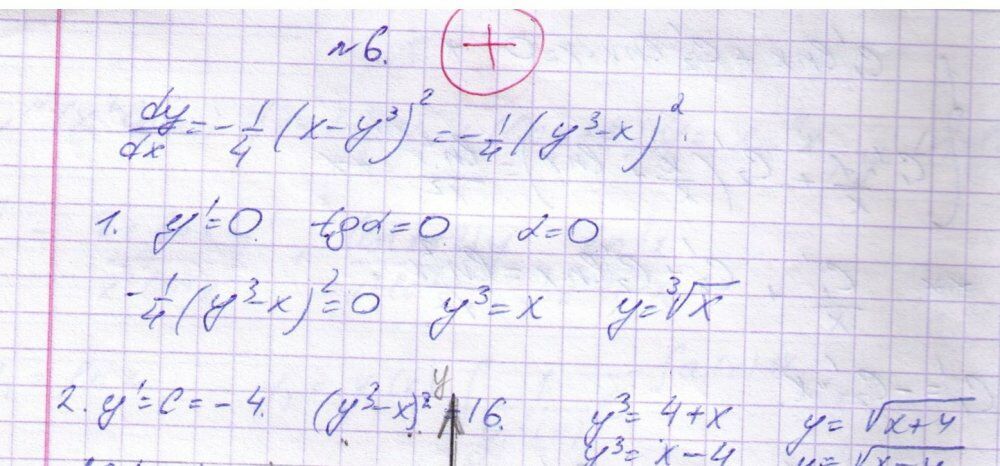 №6. +
dy/dx = -1/4 (x - y³)² = -1/4 (y³ - x)²
1. y' = 0. tg α = 0. α = 0
-1/4 (y³ - x)² = 0 y³ = x y = ∛x
2. y' = C = -4. (y³ - x)² = 16. y³ = 4 + x y = √(x+4)
y
y³ = x - 4